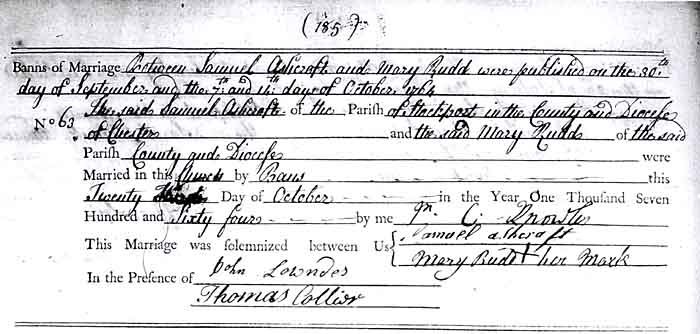 (185)
Banns of Marriage Between Samuel Ashcroft and Mary Rudd were published on the 30th
day of September and the 7th and 14th days of October 1764
No 63 The said Samuel Ashcroft of the Parish of Stockport in the County and Diocese
of Chester and the said Mary Rudd of the said
Parish County and Diocese were
Married in this Church by Banns this
Twenty Day of October in the Year One Thousand Seven
Hundred and Sixty four by me
This Marriage was solemnized between Us Samuel Ashcroft
Mary Rudd + her Mark
In the Presence of John Lowndes
Thomas Collier